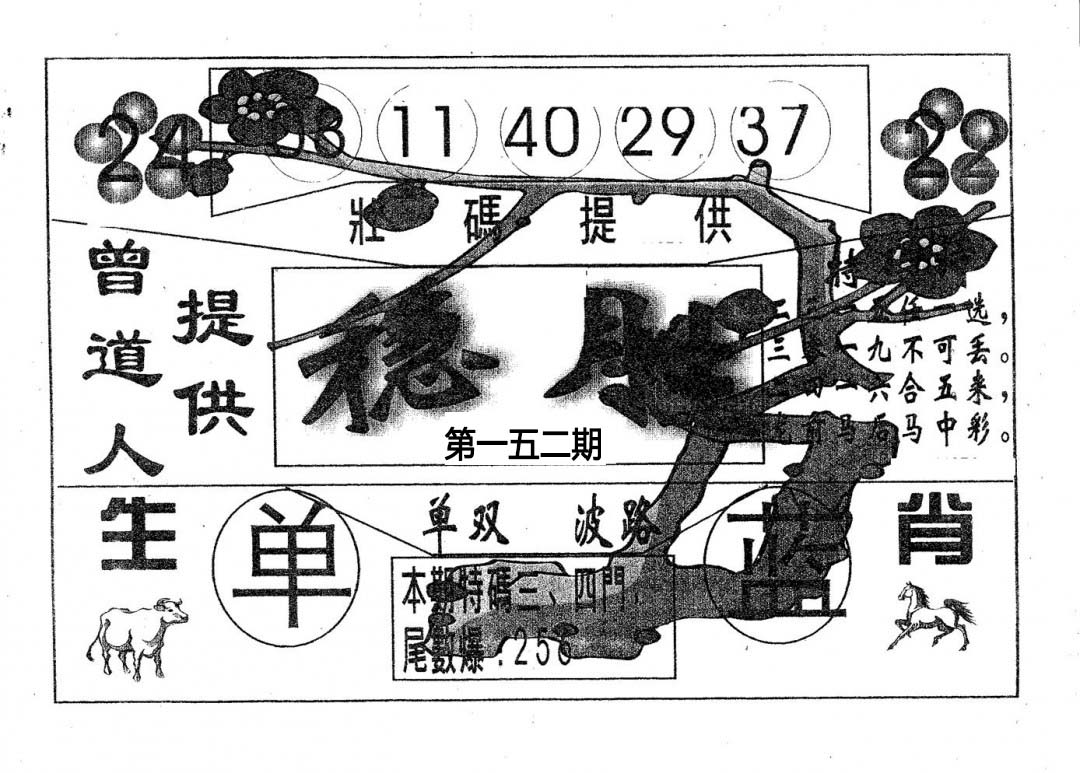 24 03 11 40 29 37 22
壯碼提供
曾道人
提供
稳胜
第一五二期
特
选，
三 一九不可丢。
六合五来，
前马后马中彩。
生肖
单
单双 波路
蓝
本期特碼三、四門.
尾數爆:256